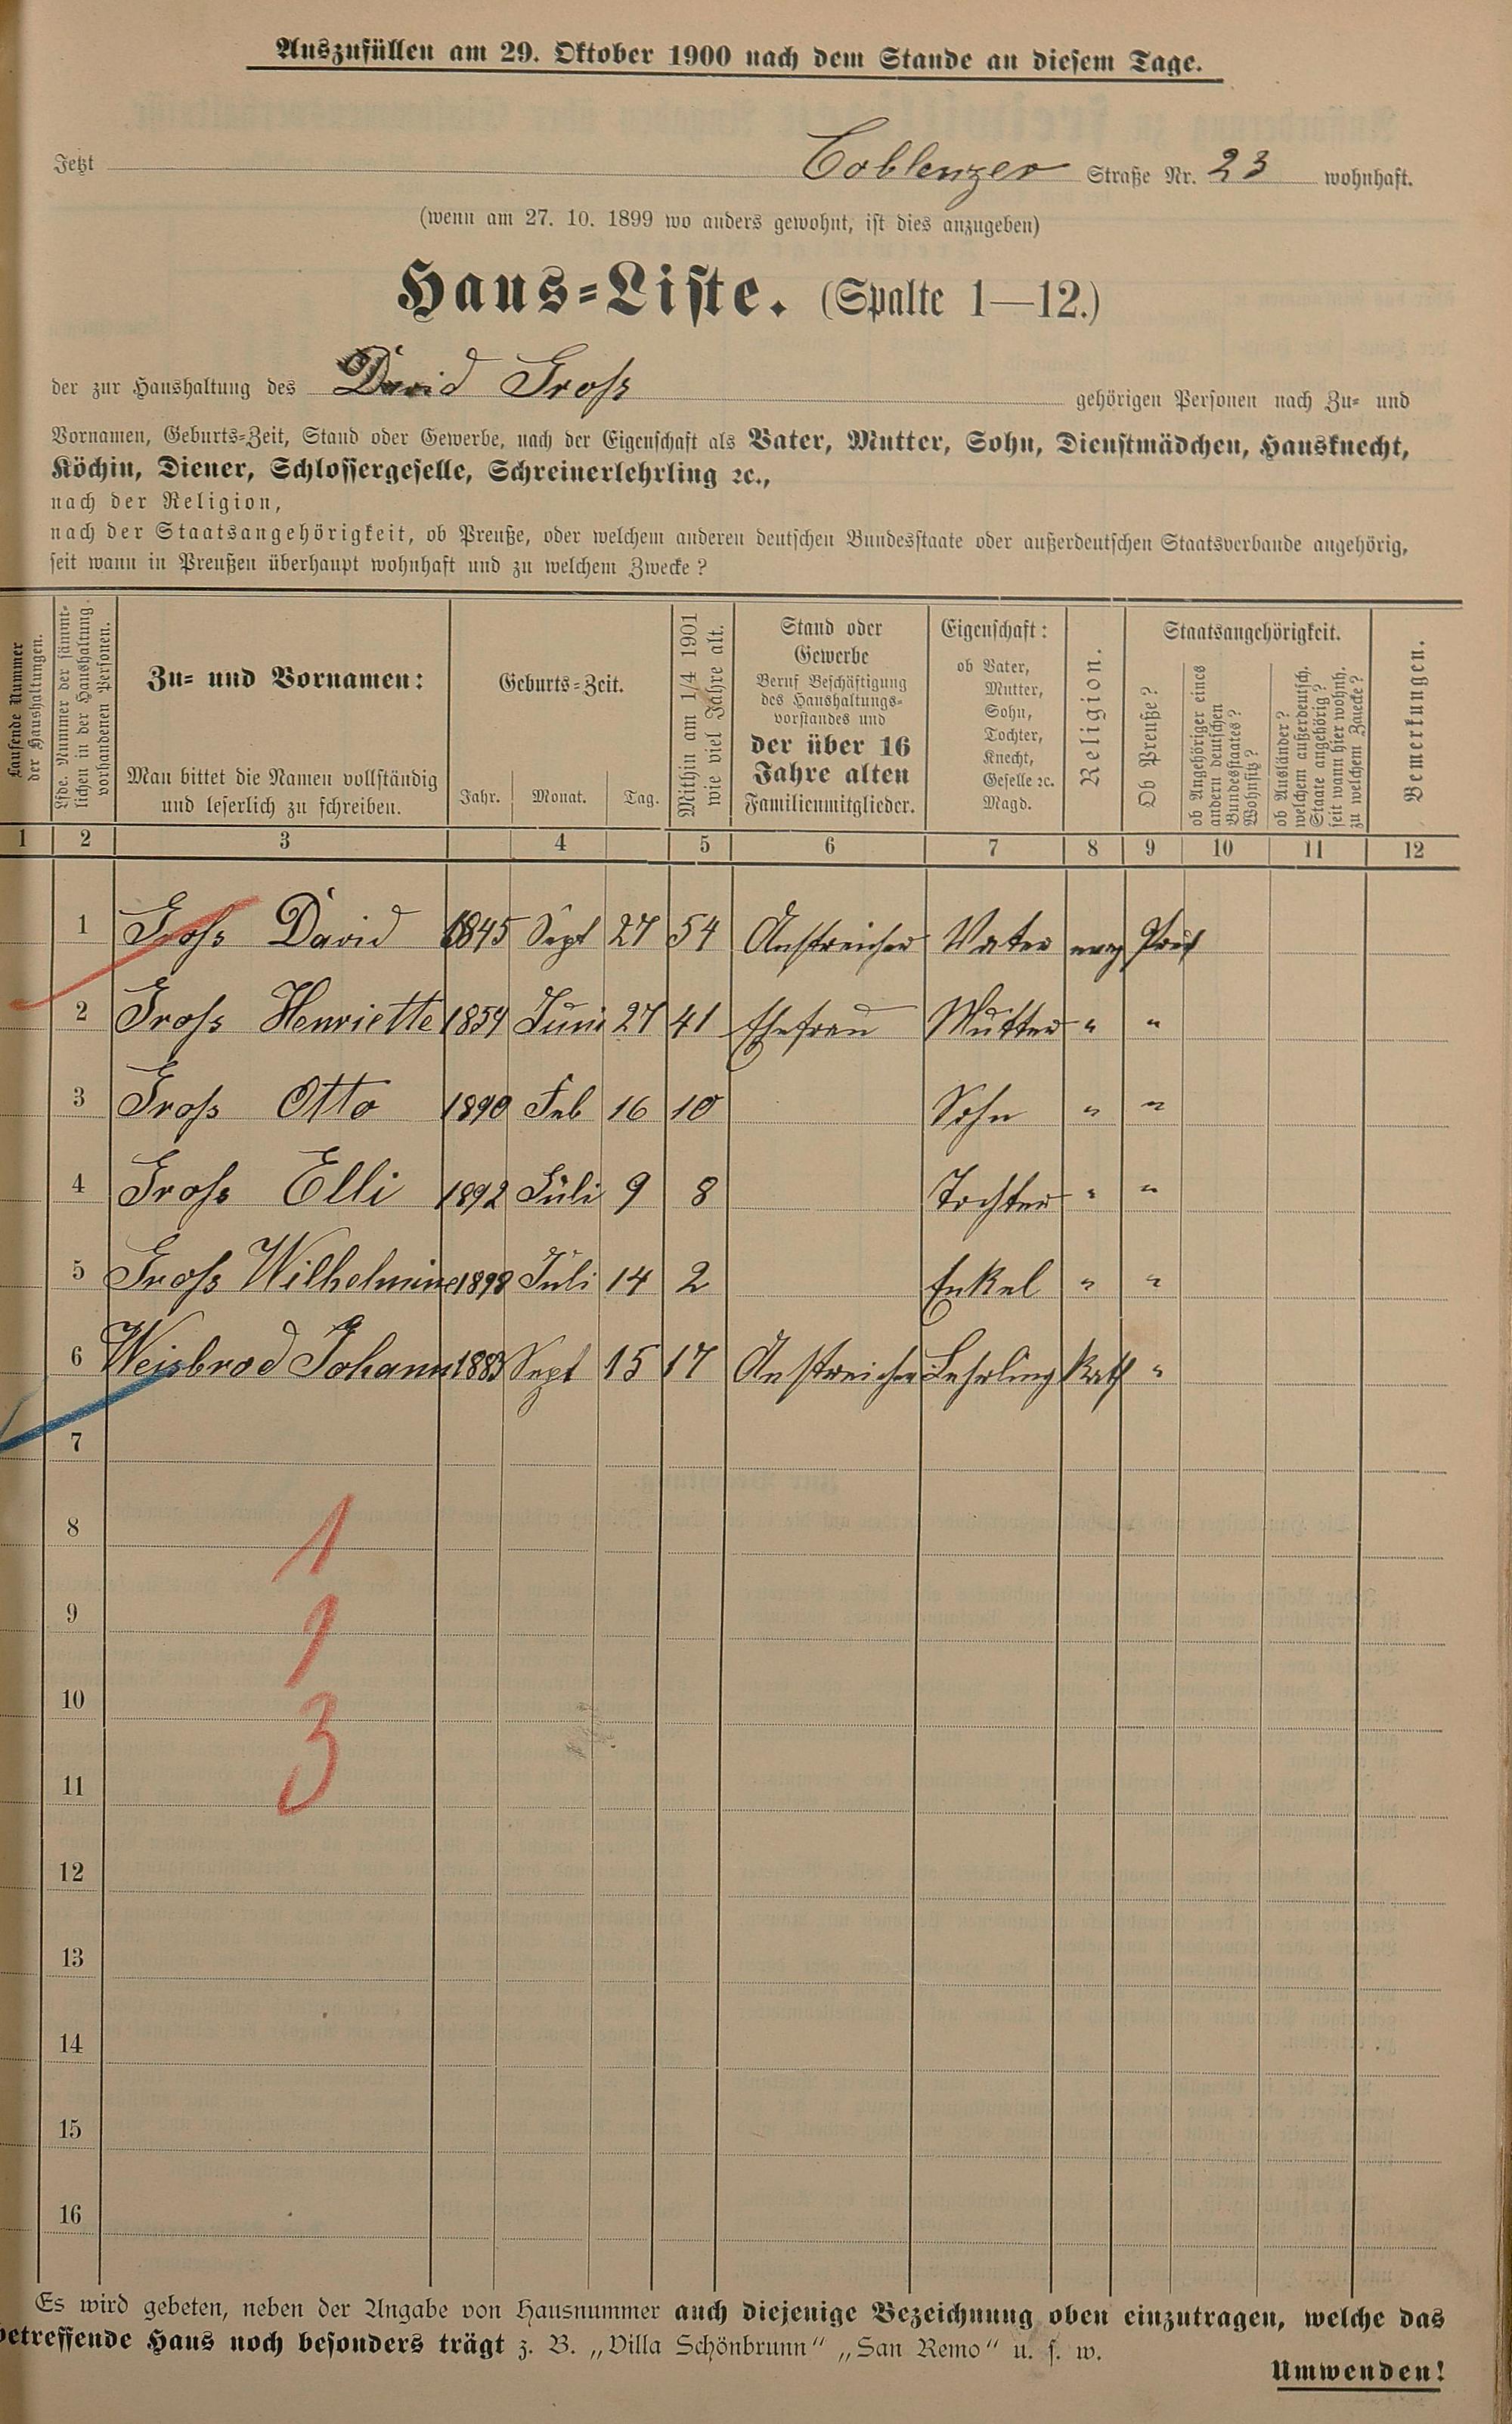 Auszufüllen am 29. Oktober 1900 nach dem Stande an diesem Tage.
Jetzt Coblenzer Straße Nr. 23 wohnhaft.
(wenn am 27. 10. 1899 wo anders gewohnt, ist dies anzugeben)
Haus-Liste. (Spalte 1—12.)
der zur Haushaltung des David Gross gehörigen Personen nach Zu- und
Vornamen, Geburts-Zeit, Stand oder Gewerbe, nach der Eigenschaft als Vater, Mutter, Sohn, Dienstmädchen, Hausknecht,
Köchin, Diener, Schlossergeselle, Schreinerlehrling ꝛc.,
nach der Religion,
nach der Staatsangehörigkeit, ob Preuße, oder welchem anderen deutschen Bundesstaate oder außerdeutschen Staatsverbande angehörig,
seit wann in Preußen überhaupt wohnhaft und zu welchem Zwecke?
Laufende Nummer
der Haushaltungen.
Lfde. Nummer der sämmt-
lichen in der Haushaltung
vorhandenen Personen.
Zu- und Vornamen:
Man bittet die Namen vollständig
und leserlich zu schreiben.
Geburts-Zeit.
Jahr. Monat. Tag.
Mithin am 1/4 1901
wie viel Jahre alt.
Stand oder
Gewerbe
Beruf Beschäftigung
des Haushaltungs-
vorstandes und
der über 16
Jahre alten
Familienmitglieder.
Eigenschaft:
ob Vater,
Mutter,
Sohn,
Tochter,
Knecht,
Geselle ꝛc.
Magd.
Religion.
Staatsangehörigkeit.
Ob Preuße?
ob Angehöriger eines
andern deutschen
Bundesstaates?
Wohnsitz?
ob Ausländer?
welchem außerdeutsch.
Staate angehörig?
seit wann hier wohnh.
zu welchem Zwecke?
Bemerkungen.
1 2 3 4 5 6 7 8 9 10 11 12
1 Gross David 1845 Sept 27 54 Anstreicher Vater evag Preuß
2 Gross Henriette 1859 Juni 27 41 Ehefrau Mutter " "
3 Gross Otto 1890 Feb 16 10 Sohn " "
4 Gross Elli 1892 Juli 9 8 Tochter " "
5 Gross Wilhelmine 1898 Juli 14 2 Enkel " "
6 Weisbrod Johann 1883 Sept 15 17 Anstreicher Lehrling Kath "
7
8
1
9
1
10
3
11
12
13
14
15
16
Es wird gebeten, neben der Angabe von Hausnummer auch diejenige Bezeichnung oben einzutragen, welche das
betreffende Haus noch besonders trägt z. B. „Villa Schönbrunn“ „San Remo“ u. s. w.
Umwenden!